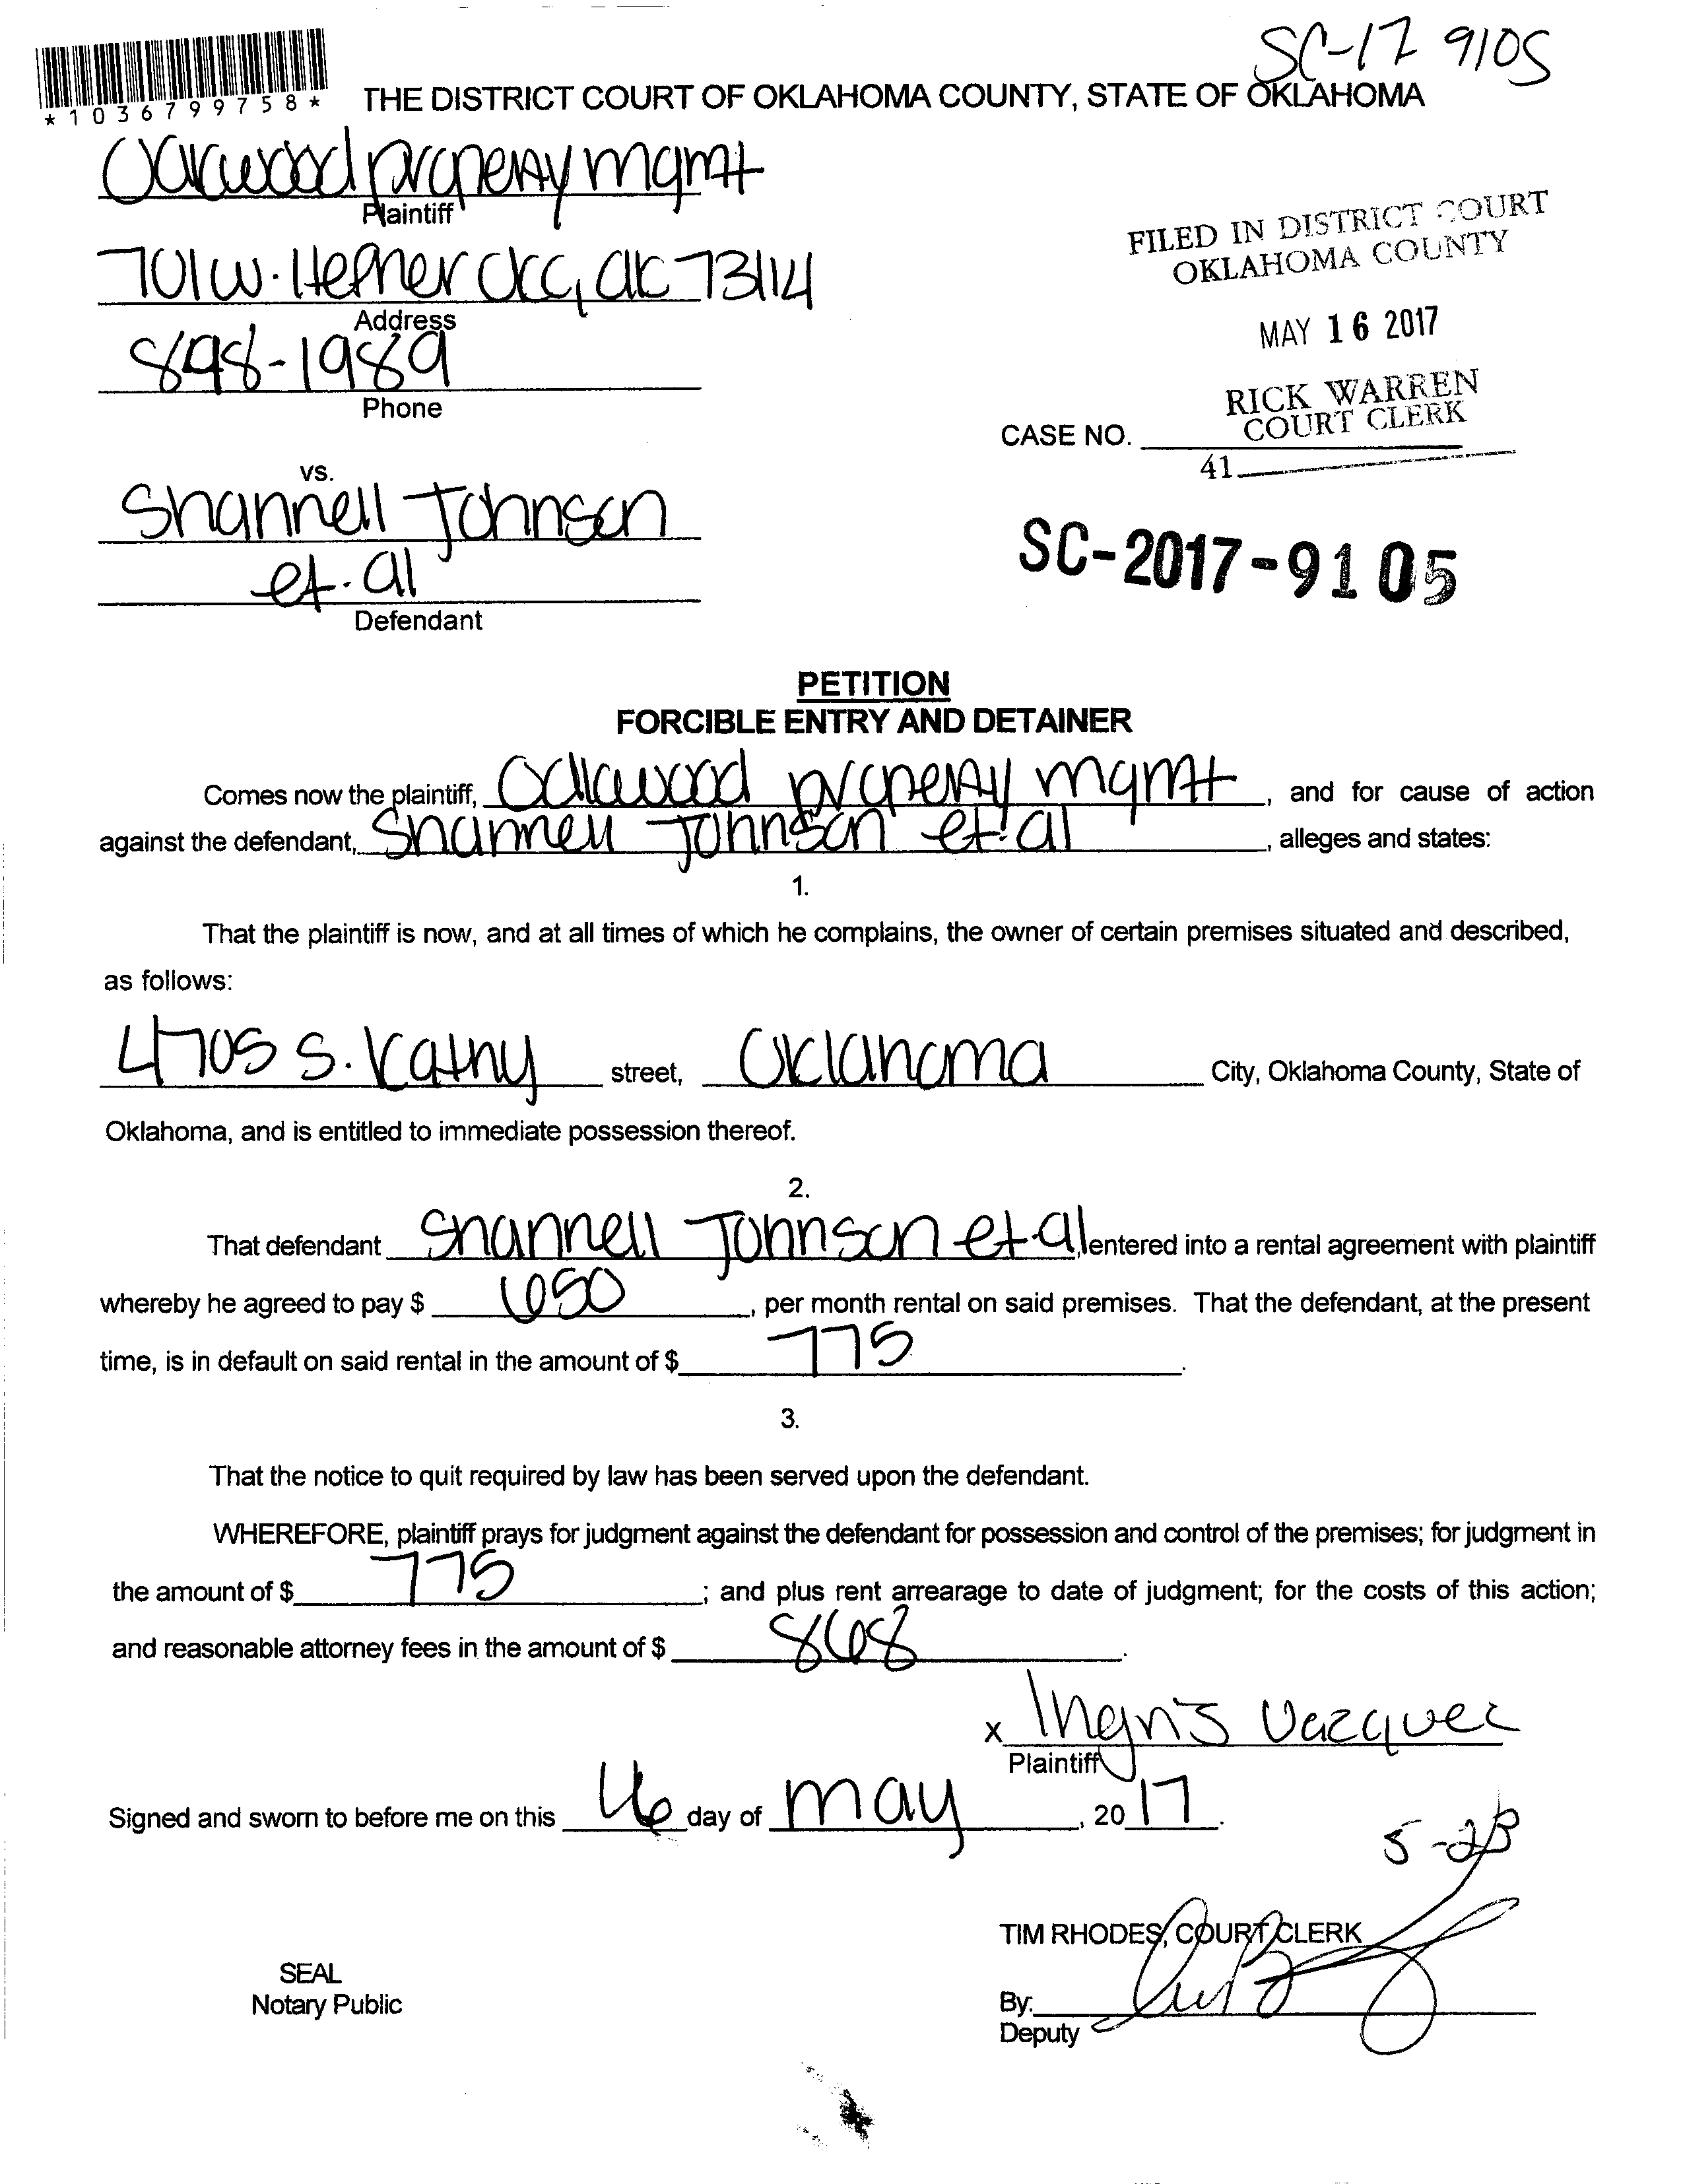 SC-17 9105
*1036799758*
THE DISTRICT COURT OF OKLAHOMA COUNTY, STATE OF OKLAHOMA
Oakwood property mgmt
Plaintiff
701 W. Hefner OKC, OK 73114
Address
898-1989
Phone
FILED IN DISTRICT COURT
OKLAHOMA COUNTY
MAY 16 2017
RICK WARREN
COURT CLERK
CASE NO.
41
vs.
Shannell Johnson
et. al
Defendant
SC-2017-9105
PETITION
FORCIBLE ENTRY AND DETAINER
Comes now the plaintiff, Oakwood property mgmt, and for cause of action
against the defendant, Shannell Johnson et. al, alleges and states:
1.
That the plaintiff is now, and at all times of which he complains, the owner of certain premises situated and described,
as follows:
4705 S. Kathy street, Oklahoma City, Oklahoma County, State of
Oklahoma, and is entitled to immediate possession thereof.
2.
That defendant Shannell Johnson et. al, entered into a rental agreement with plaintiff
whereby he agreed to pay $ 650, per month rental on said premises. That the defendant, at the present
time, is in default on said rental in the amount of $ 775.
3.
That the notice to quit required by law has been served upon the defendant.
WHEREFORE, plaintiff prays for judgment against the defendant for possession and control of the premises; for judgment in
the amount of $ 775; and plus rent arrearage to date of judgment; for the costs of this action;
and reasonable attorney fees in the amount of $ 868.
X Vazquez
Plaintiff
Signed and sworn to before me on this 16 day of may, 2017.
5-23
TIM RHODES, COURT CLERK
SEAL
Notary Public
By:
Deputy